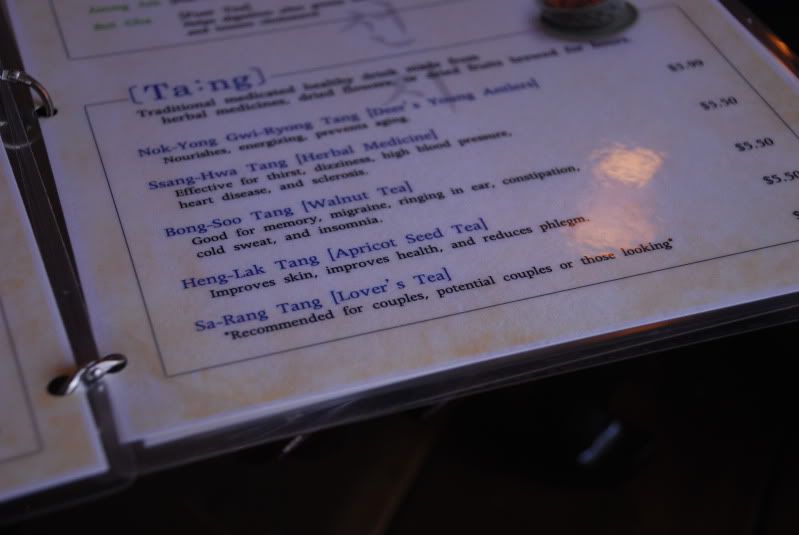 [Plum Tea]
Helps digestion after
and lowers cholesterol.
[Ta:ng]
Traditional medicated healthy drink made from
herbal medicines, dried flowers, or dried fruits brewed for hours.
Nok-Yong Gwi-Ryong Tang [Deer's Young Antlers] $5.99
Nourishes, energizing, prevents aging.
Ssang-Hwa Tang [Herbal Medicine] $5.50
Effective for thirst, dizziness, high blood pressure,
heart disease, and sclerosis.
Bong-Soo Tang [Walnut Tea] $5.50
Good for memory, migraine, ringing in ear, constipation,
cold sweat, and insomnia.
Heng-Lak Tang [Apricot Seed Tea] $5.50
Improves skin, improves health, and reduces phlegm.
Sa-Rang Tang [Lover's Tea]
*Recommended for couples, potential couples or those looking*